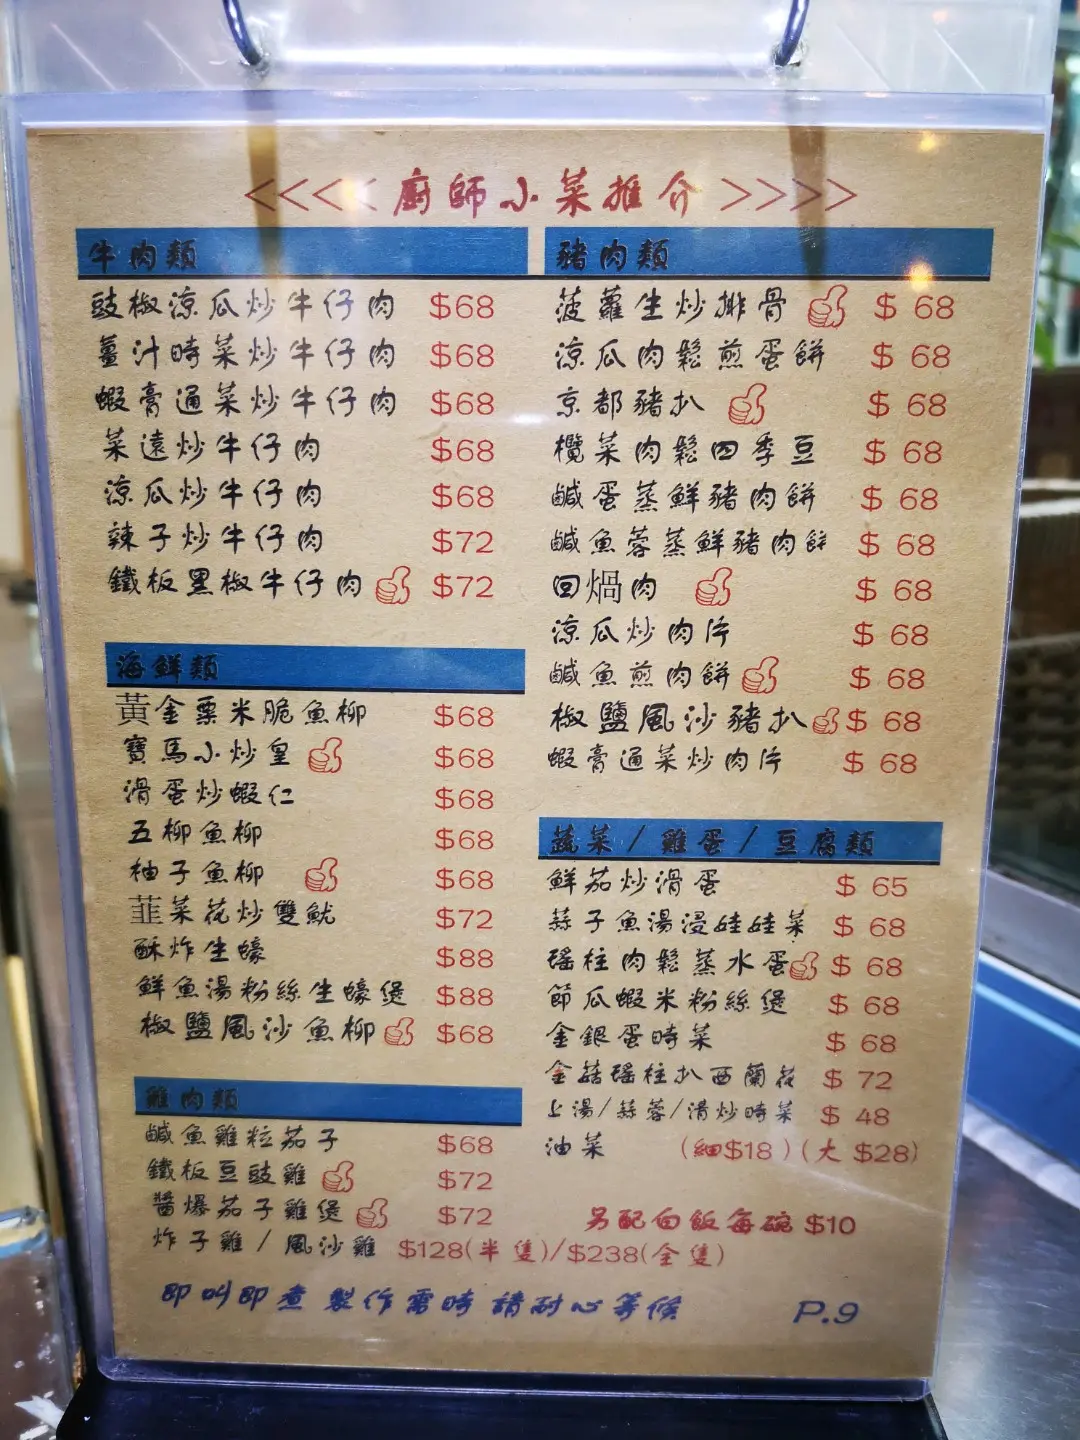 <<<< 廚師小菜推介 >>>>
牛肉類
豉椒涼瓜炒牛仔肉 $68
薑汁時菜炒牛仔肉 $68
蝦膏通菜炒牛仔肉 $68
菜遠炒牛仔肉 $68
涼瓜炒牛仔肉 $68
辣子炒牛仔肉 $72
鐵板黑椒牛仔肉 $72
海鮮類
黃金粟米脆魚柳 $68
寶馬小炒皇 $68
滑蛋炒蝦仁 $68
五柳魚柳 $68
柚子魚柳 $68
韮菜花炒雙魷 $72
酥炸生蠔 $88
鮮魚湯粉絲生蠔煲 $88
椒鹽風沙魚柳 $68
雞肉類
鹹魚雞粒茄子 $68
鐵板豆豉雞 $72
醬爆茄子雞煲 $72
炸子雞/風沙雞 $128(半隻)/$238(全隻)
豬肉類
菠蘿生炒排骨 $ 68
涼瓜肉鬆煎蛋餅 $ 68
京都豬扒 $ 68
欖菜肉鬆四季豆 $ 68
鹹蛋蒸鮮豬肉餅 $ 68
鹹魚蓉蒸鮮豬肉餅 $ 68
回煱肉 $ 68
涼瓜炒肉片 $ 68
鹹魚煎肉餅 $ 68
椒鹽風沙豬扒 $ 68
蝦膏通菜炒肉片 $ 68
蔬菜/雞蛋/豆腐類
鮮茄炒滑蛋 $ 65
蒜子魚湯浸娃娃菜 $ 68
瑤柱肉鬆蒸水蛋 $ 68
節瓜蝦米粉絲煲 $ 68
金銀蛋時菜 $ 68
金菇瑤柱扒西蘭花 $ 72
上湯/蒜蓉/清炒時菜 $ 48
油菜 (細$18)(大 $28)
另配白飯每碗 $10
即叫即煮 製作需時 請耐心等候 P.9